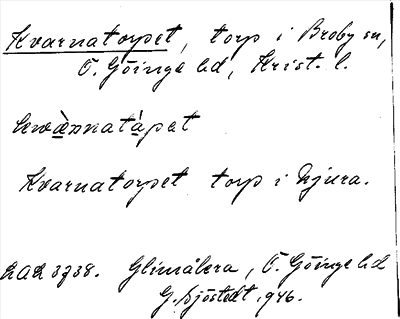 Kvarnatorpet, torp i Broby sn,
Ö. Göinge hd, Krist. l.
kwànnatàpat
Kvarnatorpet torp i
3738. Glimåkra, Ö. Göinge hd
G. Sjöstedt 1946.